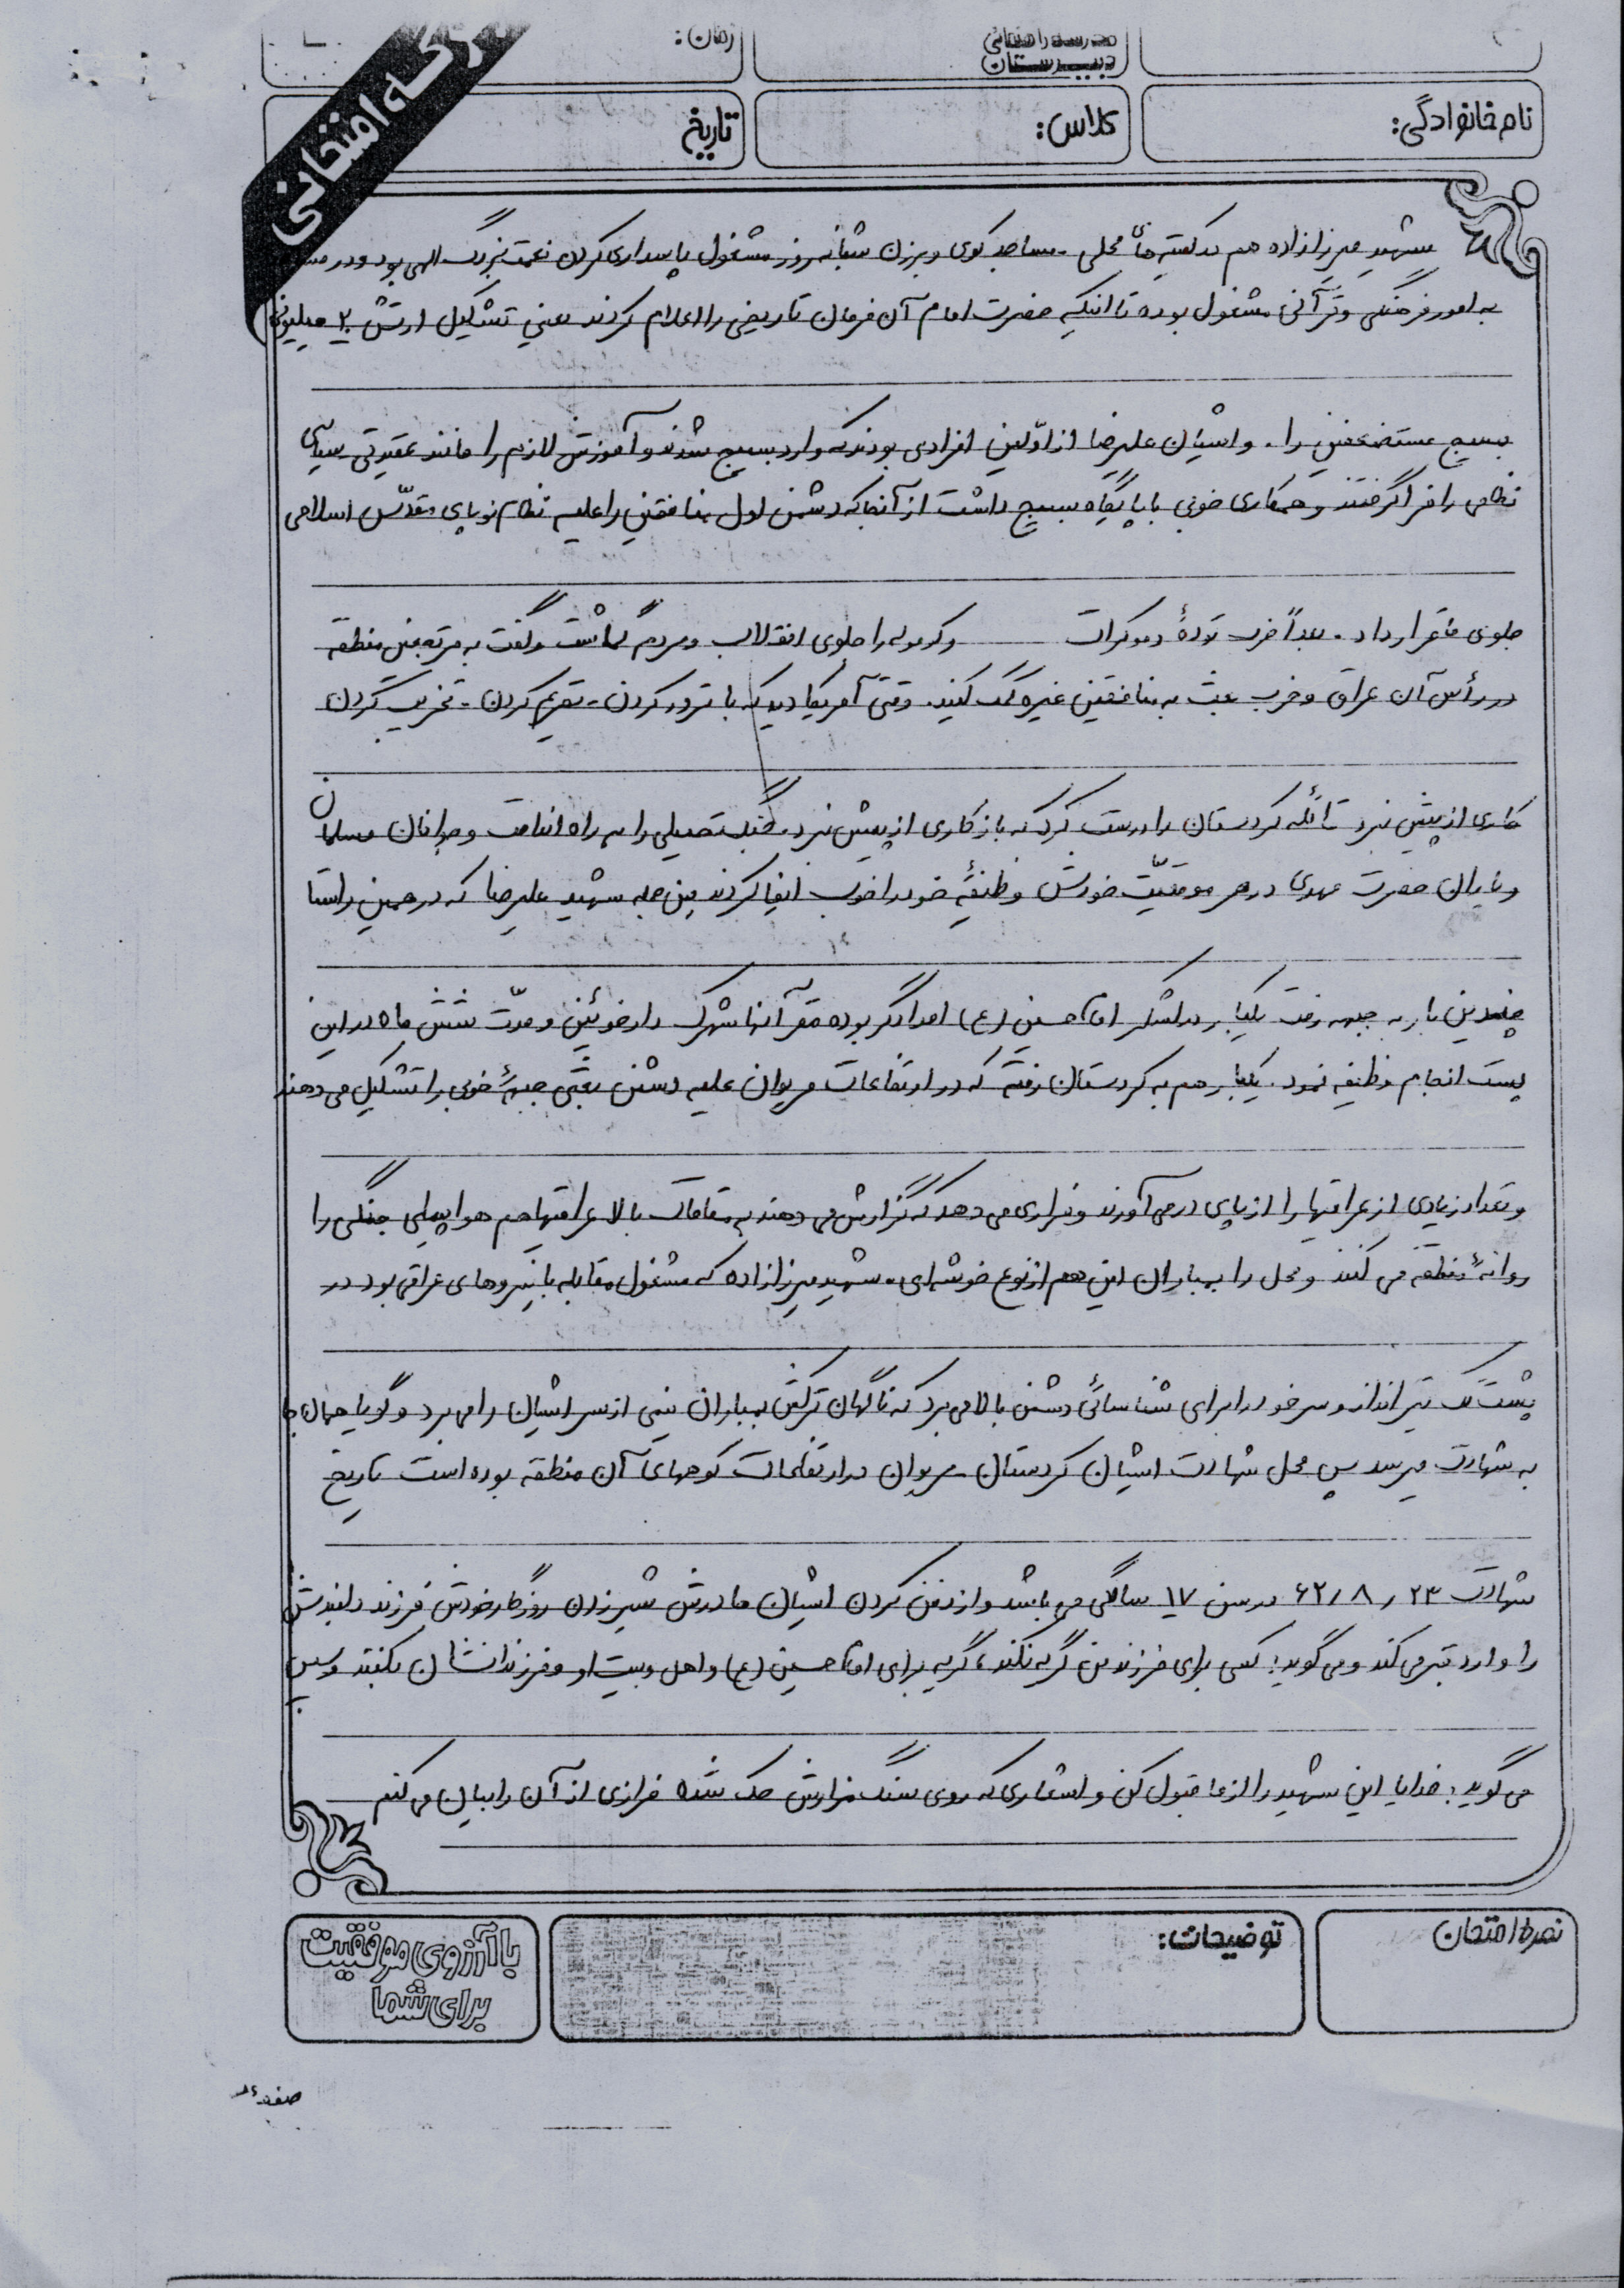 زمان:
مدرسه راهنمائی
دبیرستان
نام خانوادگی:
کلاس:
تاریخ
امتحانی
شهید میرزازاده هم در کمیته های محلی - مساجد کوی و برزن شبانه روز مشغول پاسداری کردن نعمت بزرگ الهی بود و در
به امور فرهنگی و قرآنی مشغول بوده تا اینکه حضرت امام آن فرمان تاریخی را اعلام کردند یعنی تشکیل ارتش ۲۰ میلیونی
بسیج مستضعفین را. و ایشان علیرضا از اوّلین افرادی بودند که وارد بسیج شدند و آموزش لازم را مانند عقیدتی سیاسی
نظامی را فرا گرفتند و همکاری خوبی با پایگاه بسیج داشت از آنجا که دشمن اول منافقین را علیه نظام نوپای مقدّس اسلامی
جلوی ما قرار داد. بعداً حزب تودهٔ دموکرات و کوموله را جلوی انقلاب و مردم گماشت و گفت به مرتجعین منطقه
در رأس آن عراق و حزب بعث به منافقین غیره کمک کنید. وقتی آمریکا دید که با ترور کردن - تحریم کردن - تخریب کردن
کاری از پیش نبرد تا آنکه کردستان را درست کرد که باز کاری از پیش نبرد. جنگ تحمیلی را به راه انداخت و جوانان مسلمان
و یاران حضرت مهدی در هر موقعیّت خودش وظیفهٔ خود را خوب ایفا کردند من جمله شهید علیرضا که در همین راستا
چندین بار به جبهه رفت یکبار در لشکر امام حسین (ع) امدادگر بوده مقر آنها شهرک دارخوئین و مدّت شش ماه در این
پست انجام وظیفه نمود. یکبار هم به کردستان رفته که در ارتفاعات مریوان علیه دشمن بعثی جبههٔ خوبی را تشکیل می دهند
و تعداد زیادی از عراقیها را از پای در می آورند و فراری می دهد که گزارش می دهند به مقامات بالا عراقیها هم هواپیمای جنگی را
روانهٔ منطقه می کنند و محل را بمباران این هم از نوع خوشه ای. شهید میرزازاده که مشغول مقابله با نیروهای عراقی بود در
پشت تیرانداز و سر خود را برای شناسائی دشمن بالا می برد که ناگهان ترکش بمباران نیمی از سر ایشان را می برد و گویا همان جا
به شهادت میرسد پس محل شهادت ایشان کردستان - مریوان در ارتفاعات کوههای آن منطقه بوده است تاریخ
شهادت ۲۳ / ۸ / ۶۲ در سن ۱۷ سالگی می باشد و از دفن کردن ایشان مادرش شیرزن روزگار خودش فرزند دلبندش
را وارد قبر می کند و می گوید: کسی برای فرزند من گریه نکند، گریه برای امام حسین (ع) و اهل و بیت او و فرزندانشان بکنید و سپس
می گوید: خدایا این شهید را از ما قبول کن و اشعاری که روی سنگ مزارش حک شده فرازی از آن را بیان می کنم
نمره امتحان
توضیحات:
با آرزوی موفقیت
برای شما